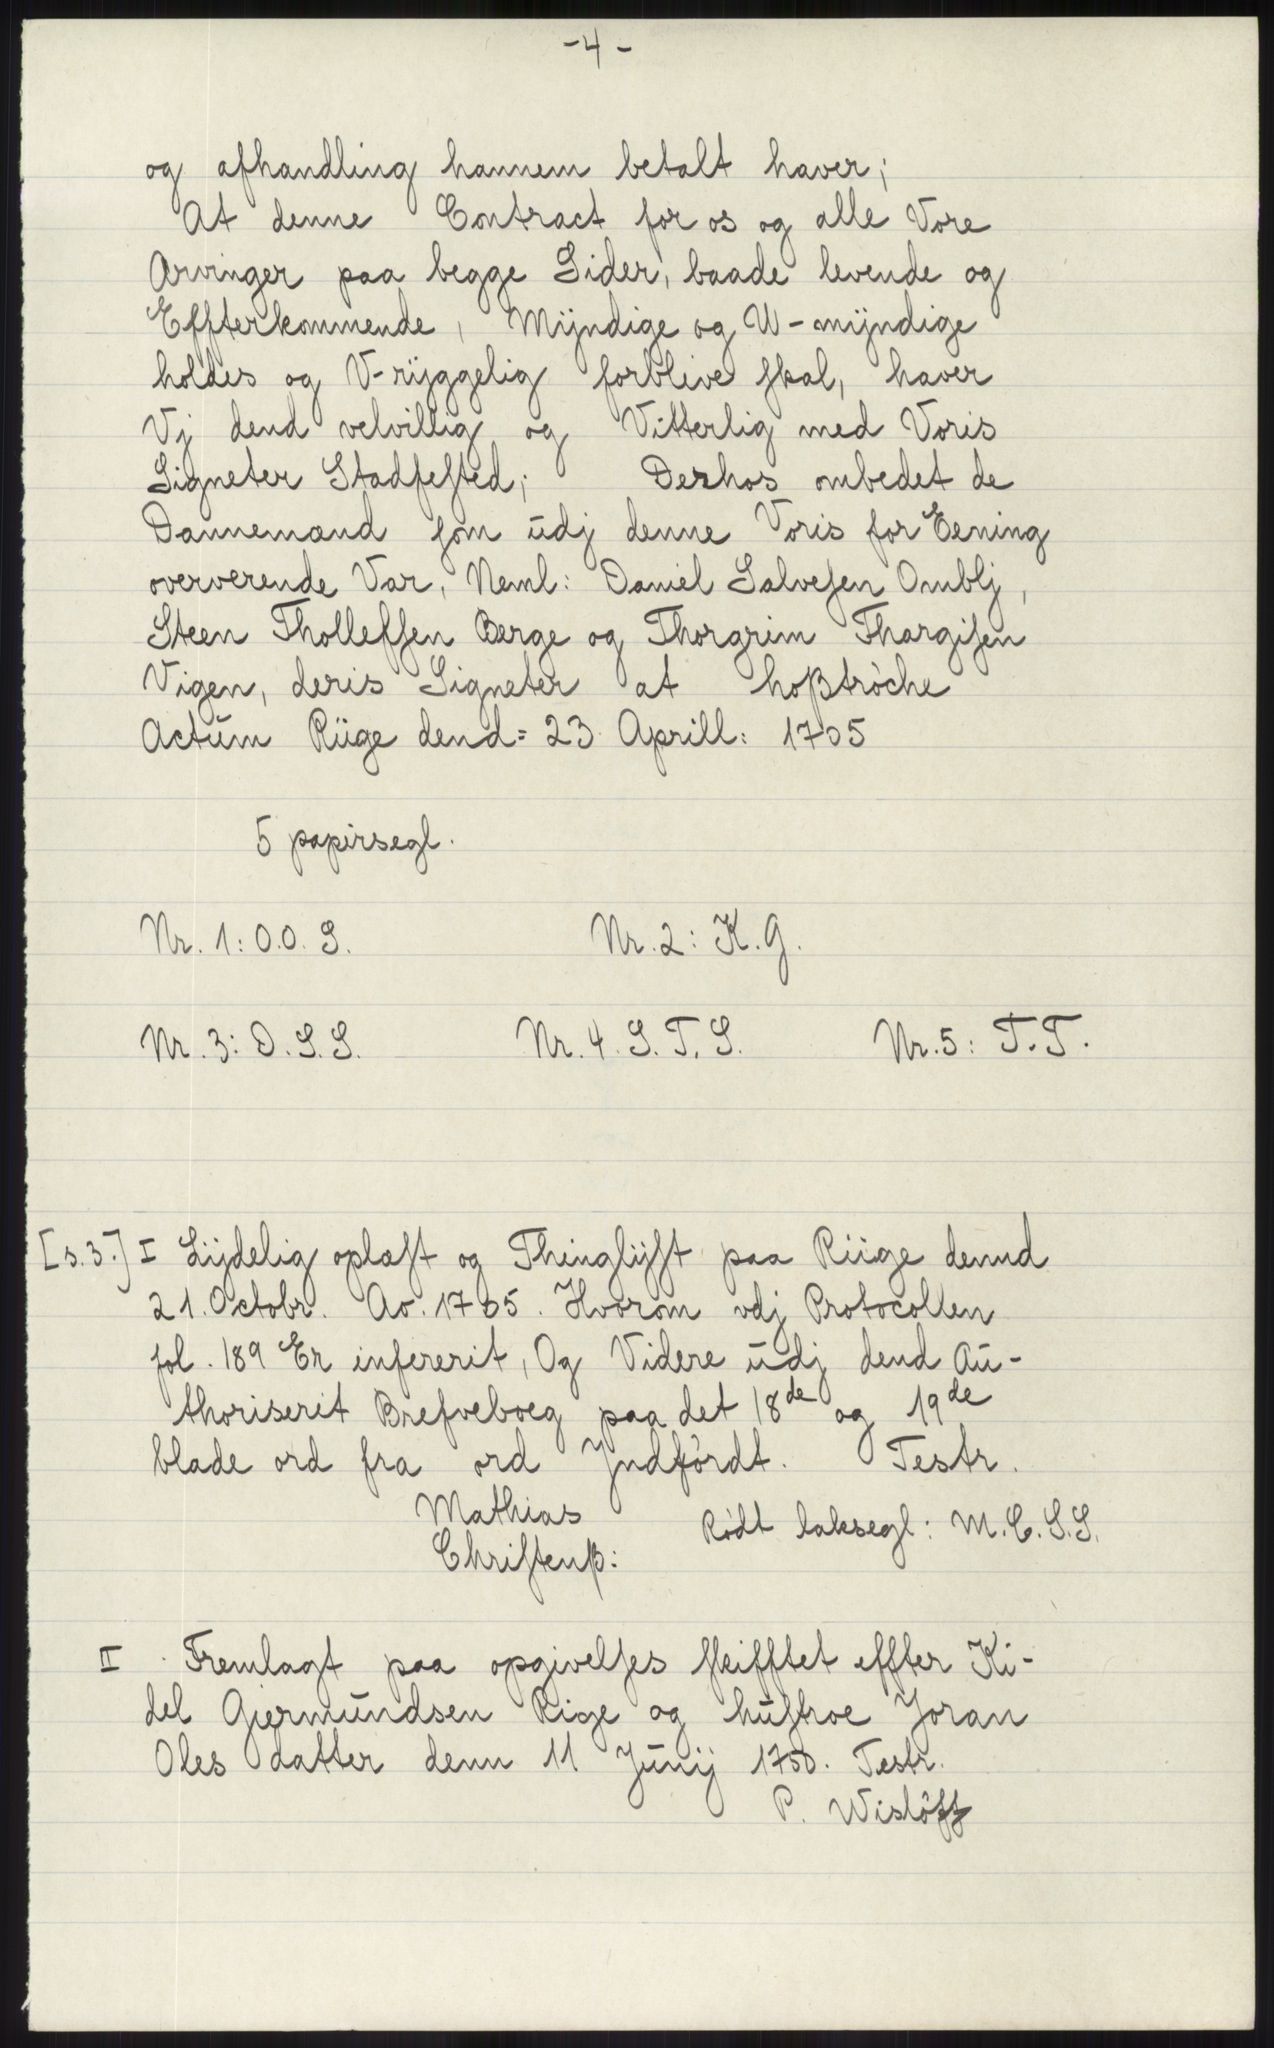 -4-
og afhandling hannem betalt haver;
At denne Contract for os og alle Vore
Arvinger paa begge Sider, baade levende og
Effterkommende, Mÿndige og U-mÿndige
holdes og V-rÿggelig forblive ſkal, haver
Vj dend velvillig og Vitterlig med Voris
Signeter Stadfeſted; Derhos ombedet de
Dannemænd ſom udj denne Voris for Eening
oververende Var, Neml: Daniel Salveſen Omblj,
Steen Tholleſsen Berge og Thorgrim Thargiſen
Vigen, deris Signeter at hoßtrÿche
Actum Riige dend= 23 Aprill: 1705
5 papirsegl.
Nr. 1: O.O.S. Nr. 2: K.G.
Nr. 3: D.S.S. Nr. 4. S.T.S. Nr. 5: T.T.
[s.3.] I Lÿdelig oplæſt og Thinglÿſt paa Riige dennd
21. Octobr. Ao. 1705. Hvorom vdj Protocollen
fol. 189 Er inſererit, Og Videre udj dend Au-
thoriserit Brefveboeg paa det 18de og 19de
blade ord fra ord Jndfördt. Testr.
Mathias
Chriſtenß: Rødt laksegl: M.C.S.S.
II Fremlagt paa opgivelſes ſkifftet effter Ki-
del Giermundsen Rige og huſtroe Joran
Oles datter denn 11 Junij 1750. Testr.
P. Wislöff